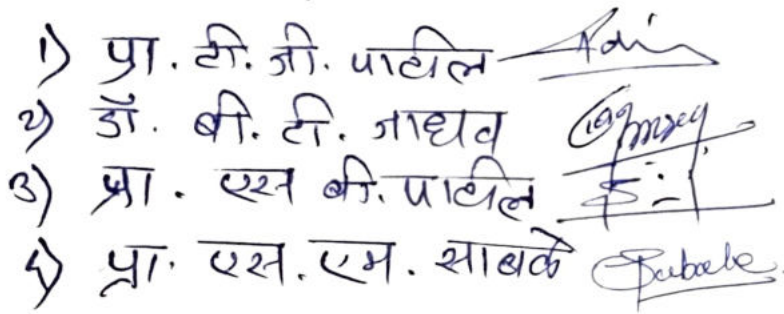 1) प्रा. टी. जी. पाटील
2) डॉ. बी. टी. जाधव
3) प्रा. एस बी. पाटील
4) प्रा. एस. एम. साबळे